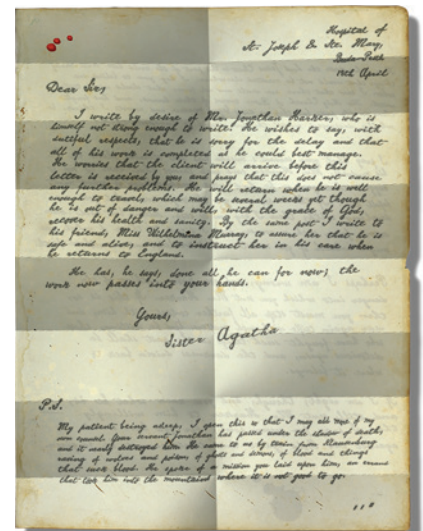 Hospital of
St. Joseph & Ste. Mary,
Buda-Pesth
14th April
Dear Sir,
I write by desire of Mr. Jonathan Harker, who is
himself not strong enough to write. He wishes to say, with
dutiful respects, that he is sorry for the delay and that
all of his work is completed as he could best manage.
He worries that the client will arrive before this
letter is received by you, and prays that this does not cause
any further problems. He will return when he is well
enough to travel, which may be several weeks yet though
he is out of danger and will, with the grace of God,
recover his health and sanity. By the same post I write to
his friend, Miss Wilhelmina Murray, to assure her that he is
safe and alive, and to instruct her in his care when
he returns to England.
He has, he says, done all he can for now; the
work now passes into your hands.
Yours,
Sister Agatha
P.S.
My patient being asleep, I open this so that I may add more of my
own counsel. Your servant Jonathan has passed under the shadow of death,
and it nearly destroyed him. He came to us by train from Klausenburg
raving of wolves and poison, of ghosts and demons, of blood and things
that suck blood. He spoke of a mission you laid upon him, an errand
that took him into the mountains where it is not good to go.